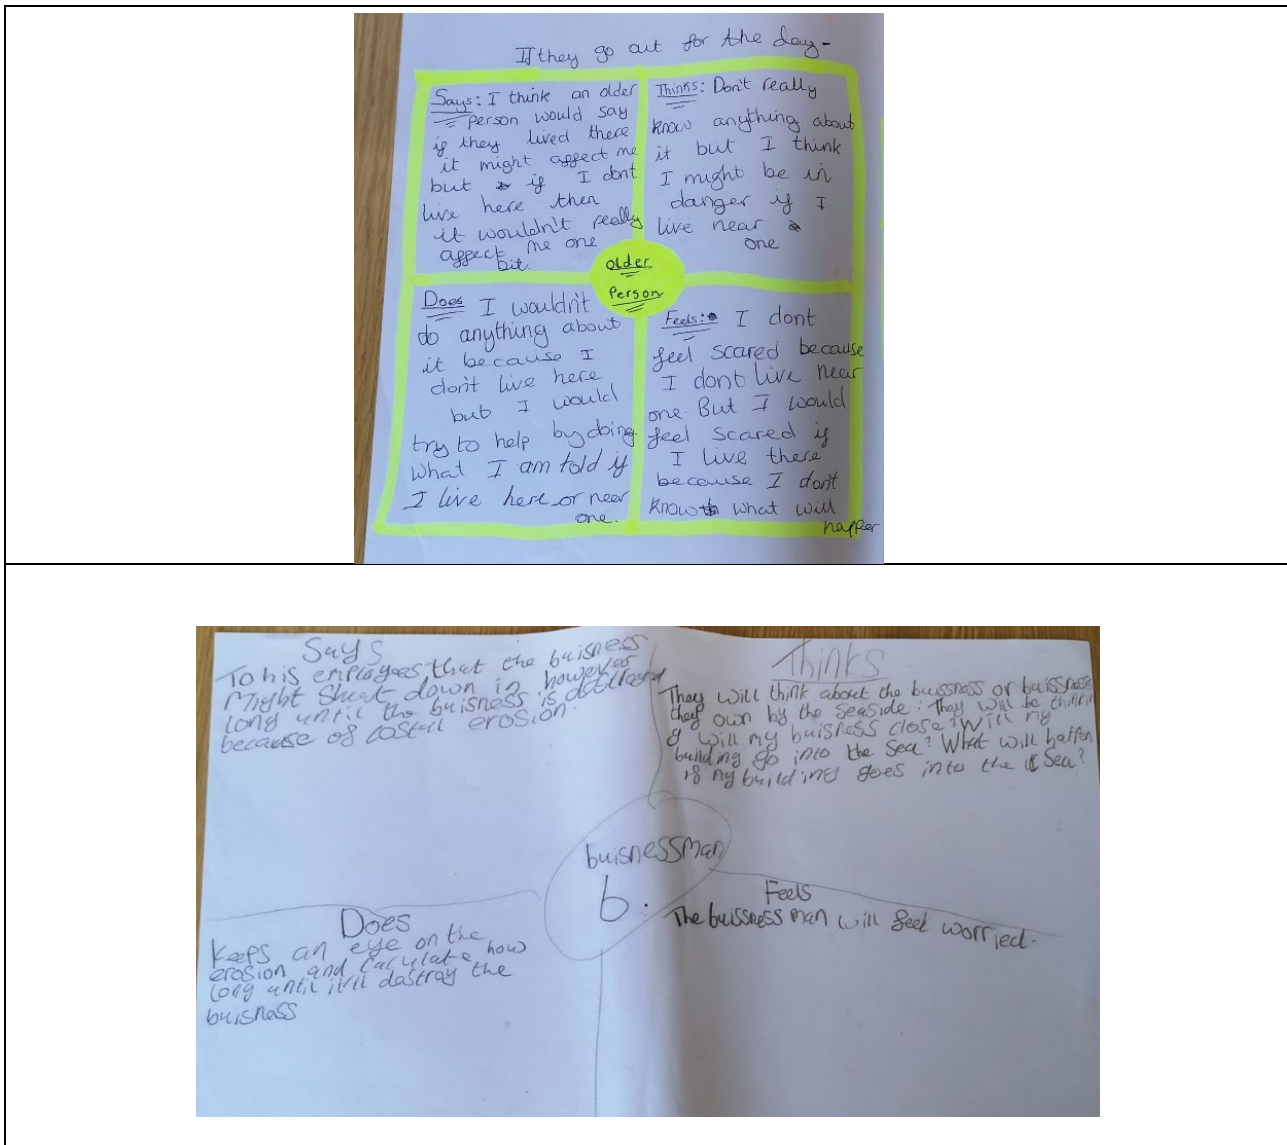 If they go out for the day -
Says: I think an older
person would say
if they lived there
it might affect me
but if I dont
live here then
it wouldn't really
affect me one
bit.
Thinks: Don't really
know anything about
it but I think
I might be in
danger if I
live near
one
Older
Person
Does I wouldn't
do anything about
it because I
don't live here
but I would
try to help by doing
what I am told if
I live here or near
one.
Feels: I dont
feel scared because
I dont live near
one. But I would
feel scared if
I live there
because I don't
know what will
happen
Says
To his employees that the buisness
Might shut down in however
long until the buisness is
because of erosion.
Thinks
They will think about the buissness or
they own by the seaside. They will be
will my buisness close? Will my
building go into the Sea? What will happen
if my building goes into the Sea?
buisnessman
6.
Does
Keeps an eye on the
erosion and calculate how
long until it'll dastray the
buisness
Feels
The buissness man will feel worried.